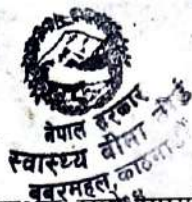 नेपाल सरकार
स्वास्थ्य बीमा बोर्ड
बबरमहल, काठमाडौं